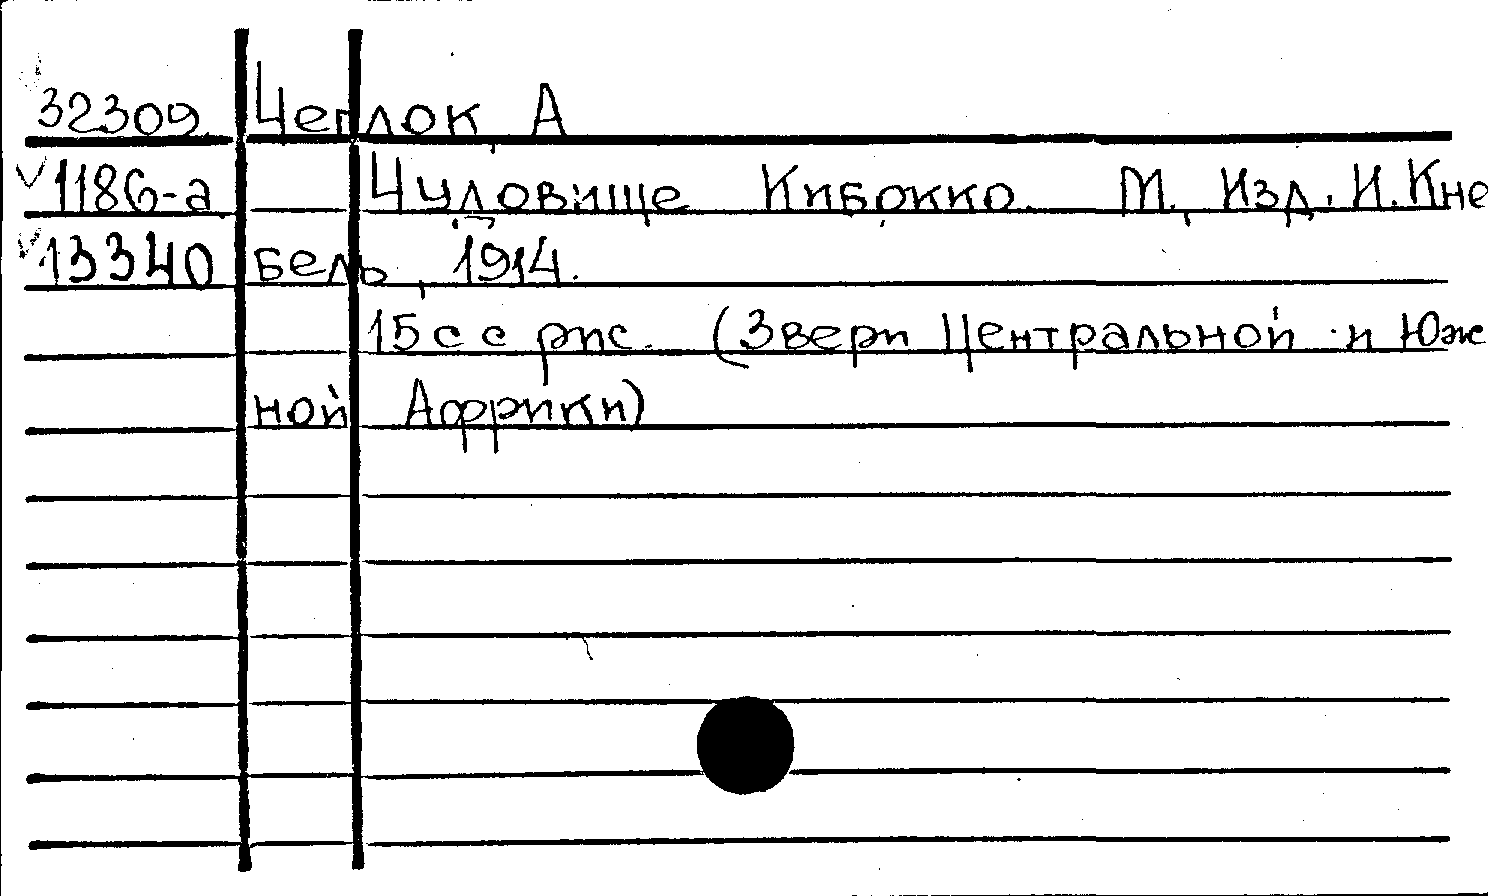 32309 Чеглок А
V 1186-а Чудовище Кибокко. М., Изд. И. Кне
V 13340 бель, 1914.
15 с с рис. (Звери Центральной и Юж
ной Африки)